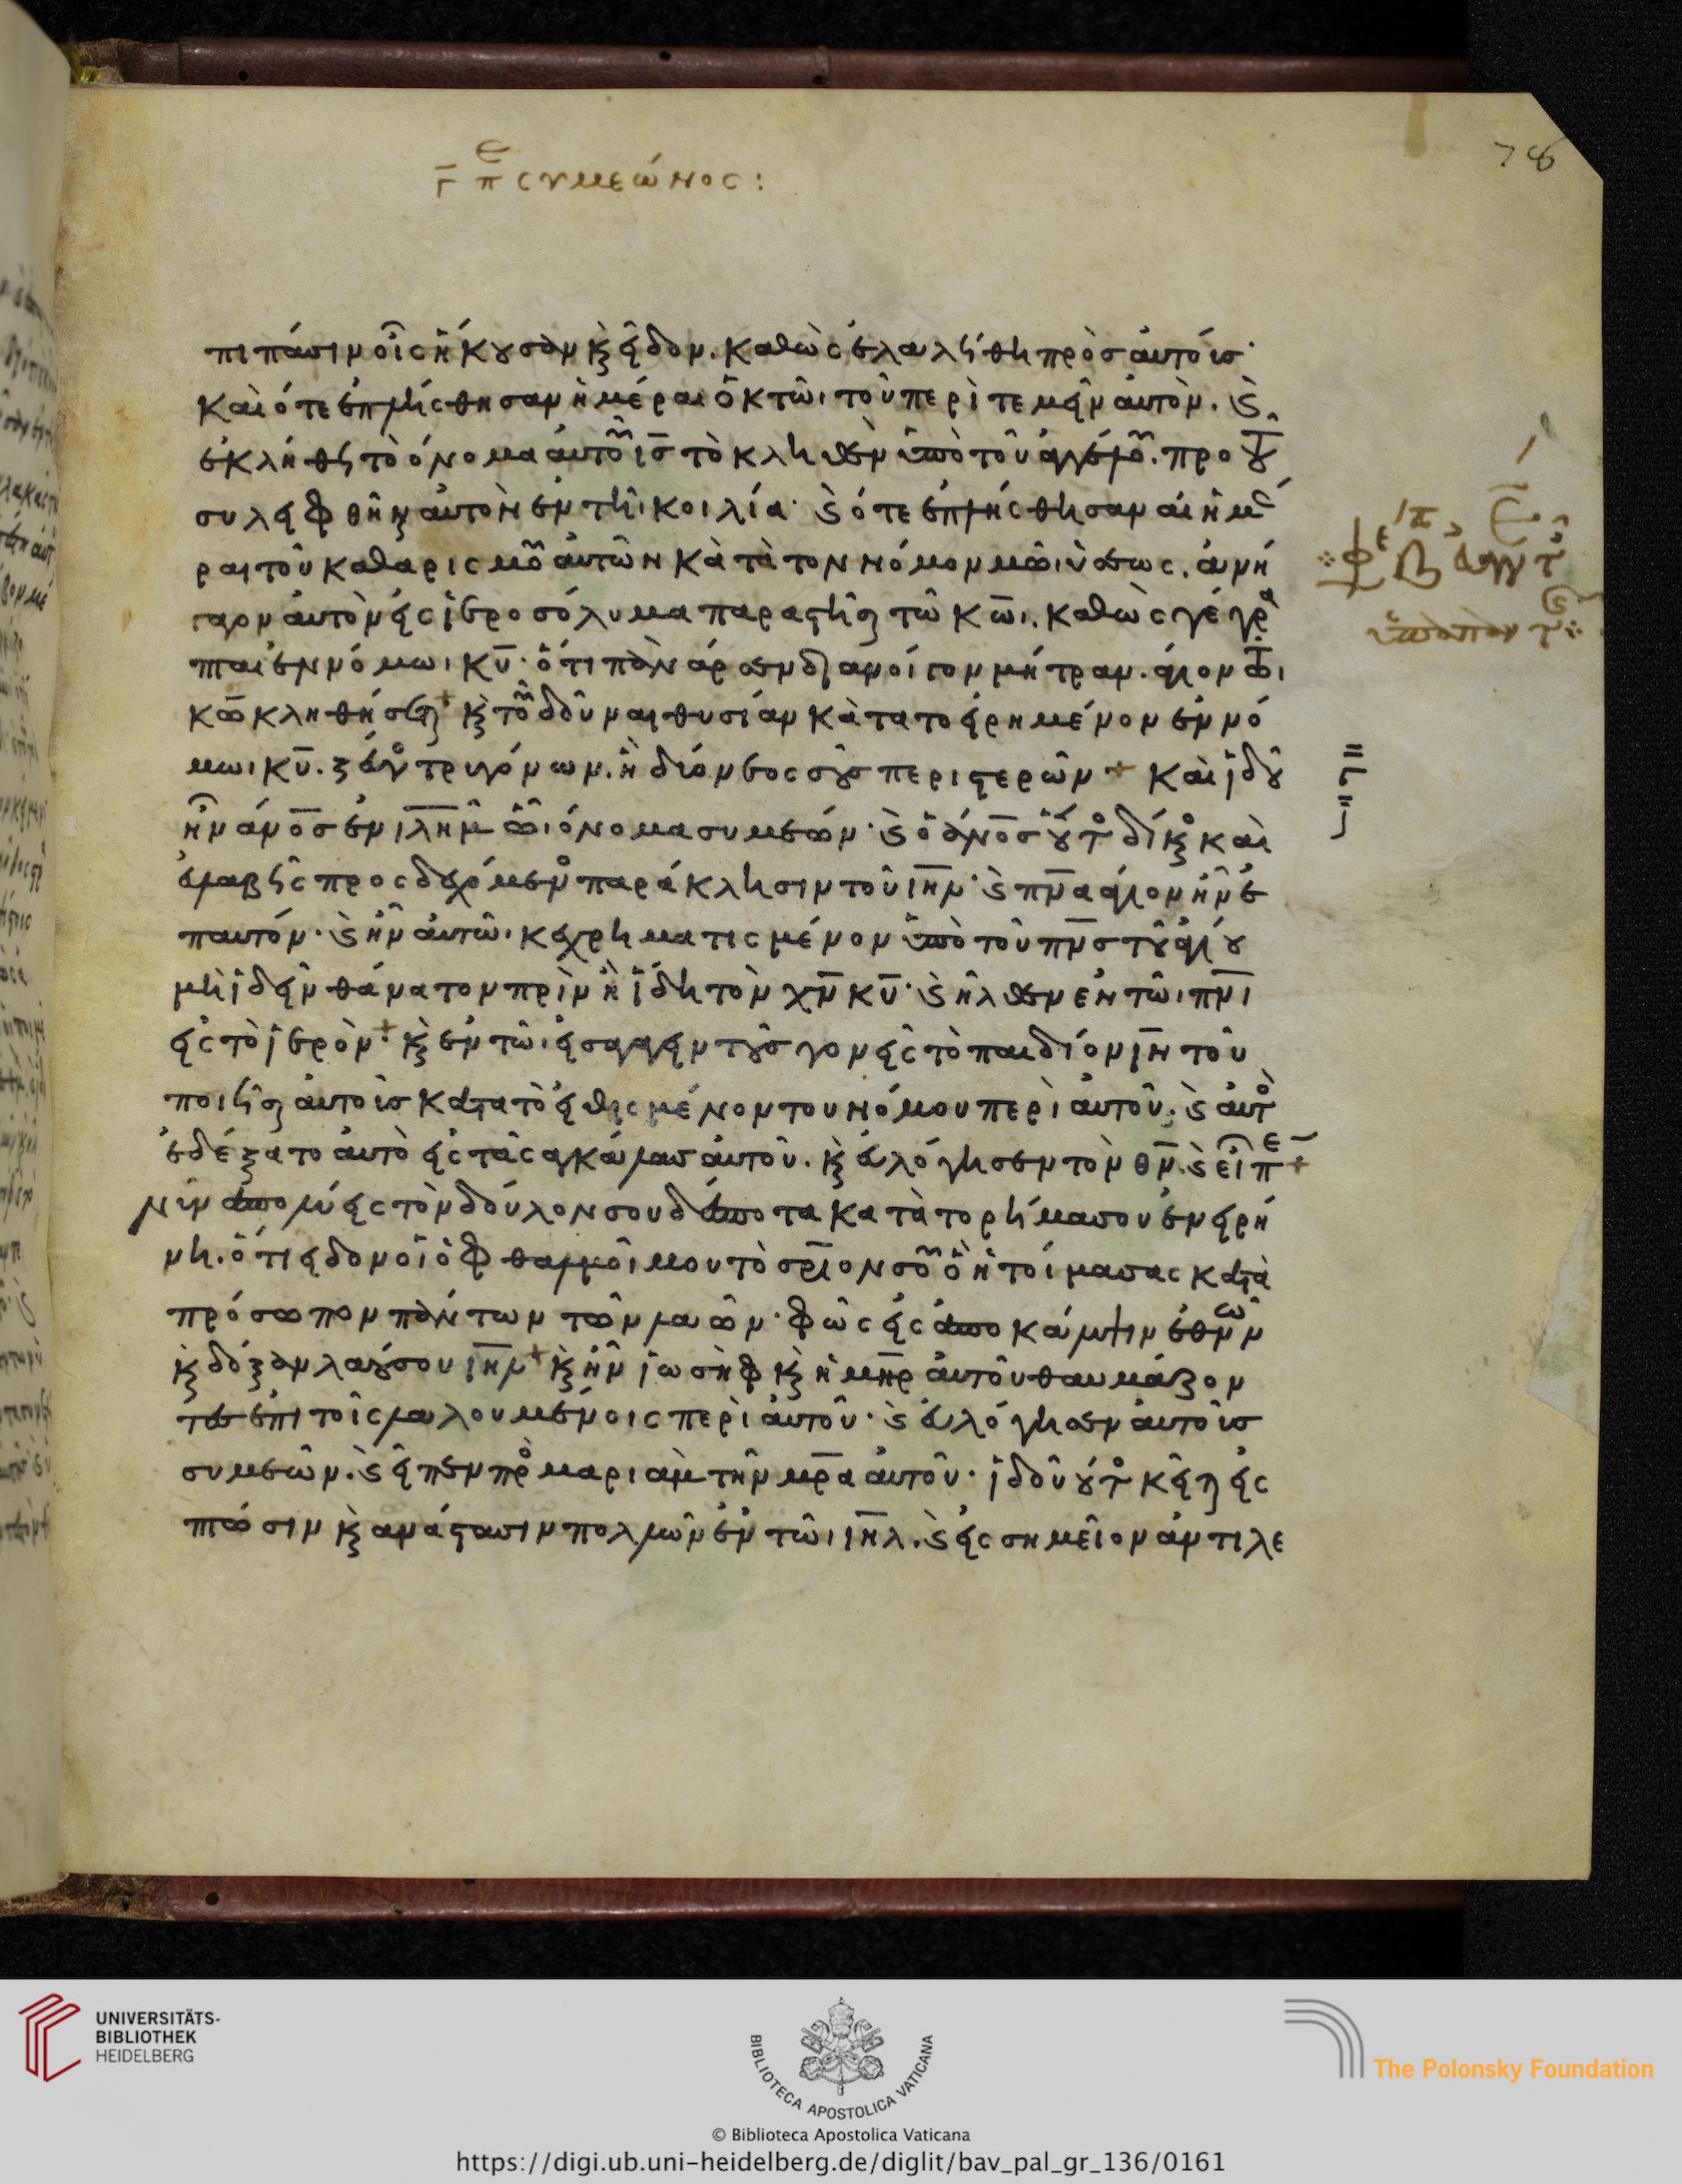 γ̅ πε συμεώνος:
78
πι πᾶσιν οἷς ἤκουσαν κ εἶδον. καθὼς ἐλαλήθη πρὸς αὐτοὺσ·
Καὶ ὅτε ἐπλήσθησαν ἡμέραι ὀκτῶι τοῦ περιτεμεῖν αὐτὸν. ϛ
ἐκλήθη τὸ ὄνομα αὐτοῦ ις̅ τὸ κληθὲν ὑπὸ τοῦ ἀγγέλου. προ τοῦ
συλειφθῆναι αὐτὸν ἐν τῆι κοιλία· ϛ ὅτε ἐπλήσθησαν αἱ ἡμέ
ραι τοῦ καθαρισμοῦ αὐτῶν κὰτὰ τον νόμον μωϋσέως. ἀνή
γαγον αὐτὸν εἰς ἱεροσόλυμα παραστῆσαι τῶ κω̅ι. καθὼς γέγρα
πται ἐν νόμωι κυ̅· ὅτι πᾶν ἄρσεν διανοίγον μήτραν. ἅγιον τῶι
κω̅ κληθήσεται κ τοῦ δοῦναι θυσίαν κὰτα το εἰρημένον ἐν νό
μωι κυ̅. ζεῦγος τρυγόνων. ἢ δύο νεοσσοὺς περιστερῶν + Καὶ ἰδοὺ
ἦν ἀνο̅σ ἐν ιλη̅μ ὧι ὄνομα συμεών· ϛ ὁ ἀνο̅σ οὗτος δίκαιος καὶ
εὐλαβὴς προσδεχόμενος παράκλησιν τοῦ ιη̅λ· ϛ πν̅α ἅγιον ἦν ἐ
π αυτόν· ϛ ἦν αὐτῶι κεχρηματισμένον ὑπὸ τοῦ πν̅σ τοῦ ἁγίου
μὴ ἰδεῖν θάνατον πρὶν ἢ ἴδη τὸν χν̅ κυ̅· ϛ ἦλθεν ἐν τῶι πν̅ι
εἰς τὸ ἱερὸν· κ ἐν τῶι εἰσαγαγεῖν τοὺσ γονεῖς τὸ παιδίον ιν̅ τοῦ
ποιῆσαι αὐτοὺσ κατὰ τὸ εἰθισμένον του νόμου περὶ αὐτοῦ. ϛ αὐτὸς
ἐδέξατο αὐτὸ εἰς τὰς ἀγκάλασ αὐτοῦ. κ εὐλόγησεν τὸν θν̅. ϛ εἶπε +
Νῦν ἀπολύεις τὸν δοῦλον σου δέσποτα κατὰ το ρῆμα σου ἐν εἰρή
νη. ὅτι εἶδον οἱ ὀφθαλμοί μου τὸ σρι̅ον σοῦ ὃ ἡτοίμασας κατὰ
πρόσωπον πάντων τῶν λαῶν· φῶς εἰς ἀποκάλυψιν ἐθνῶν
κ δόξαν λαοῦ σου ιη̅λ + κ ἦν ἰωσὴφ κ ἡ μη̅ρ αὐτοῦ θαυμάζον
τεσ ἐπὶ τοῖς λαλουμένοις περὶ αὐτοῦ· ϛ εὐλόγησεν αὐτοὺσ
συμεών. ϛ εἶπεν πρὸς μαριὰμ τὴν μρ̅α αὐτοῦ· ἰδοῦ οὗτος κεῖται εἰς
πτῶσιν κ ἀνάστασιν πολλῶν ἐν τῶι ιη̅λ. ϛ εἰς σημεῖον ἀντιλε
γ̅
UNIVERSITÄTS-
BIBLIOTHEK
HEIDELBERG
BIBLIOTECA APOSTOLICA VATICANA
The Polonsky Foundation
© Biblioteca Apostolica Vaticana
https://digi.ub.uni-heidelberg.de/diglit/bav_pal_gr_136/0161